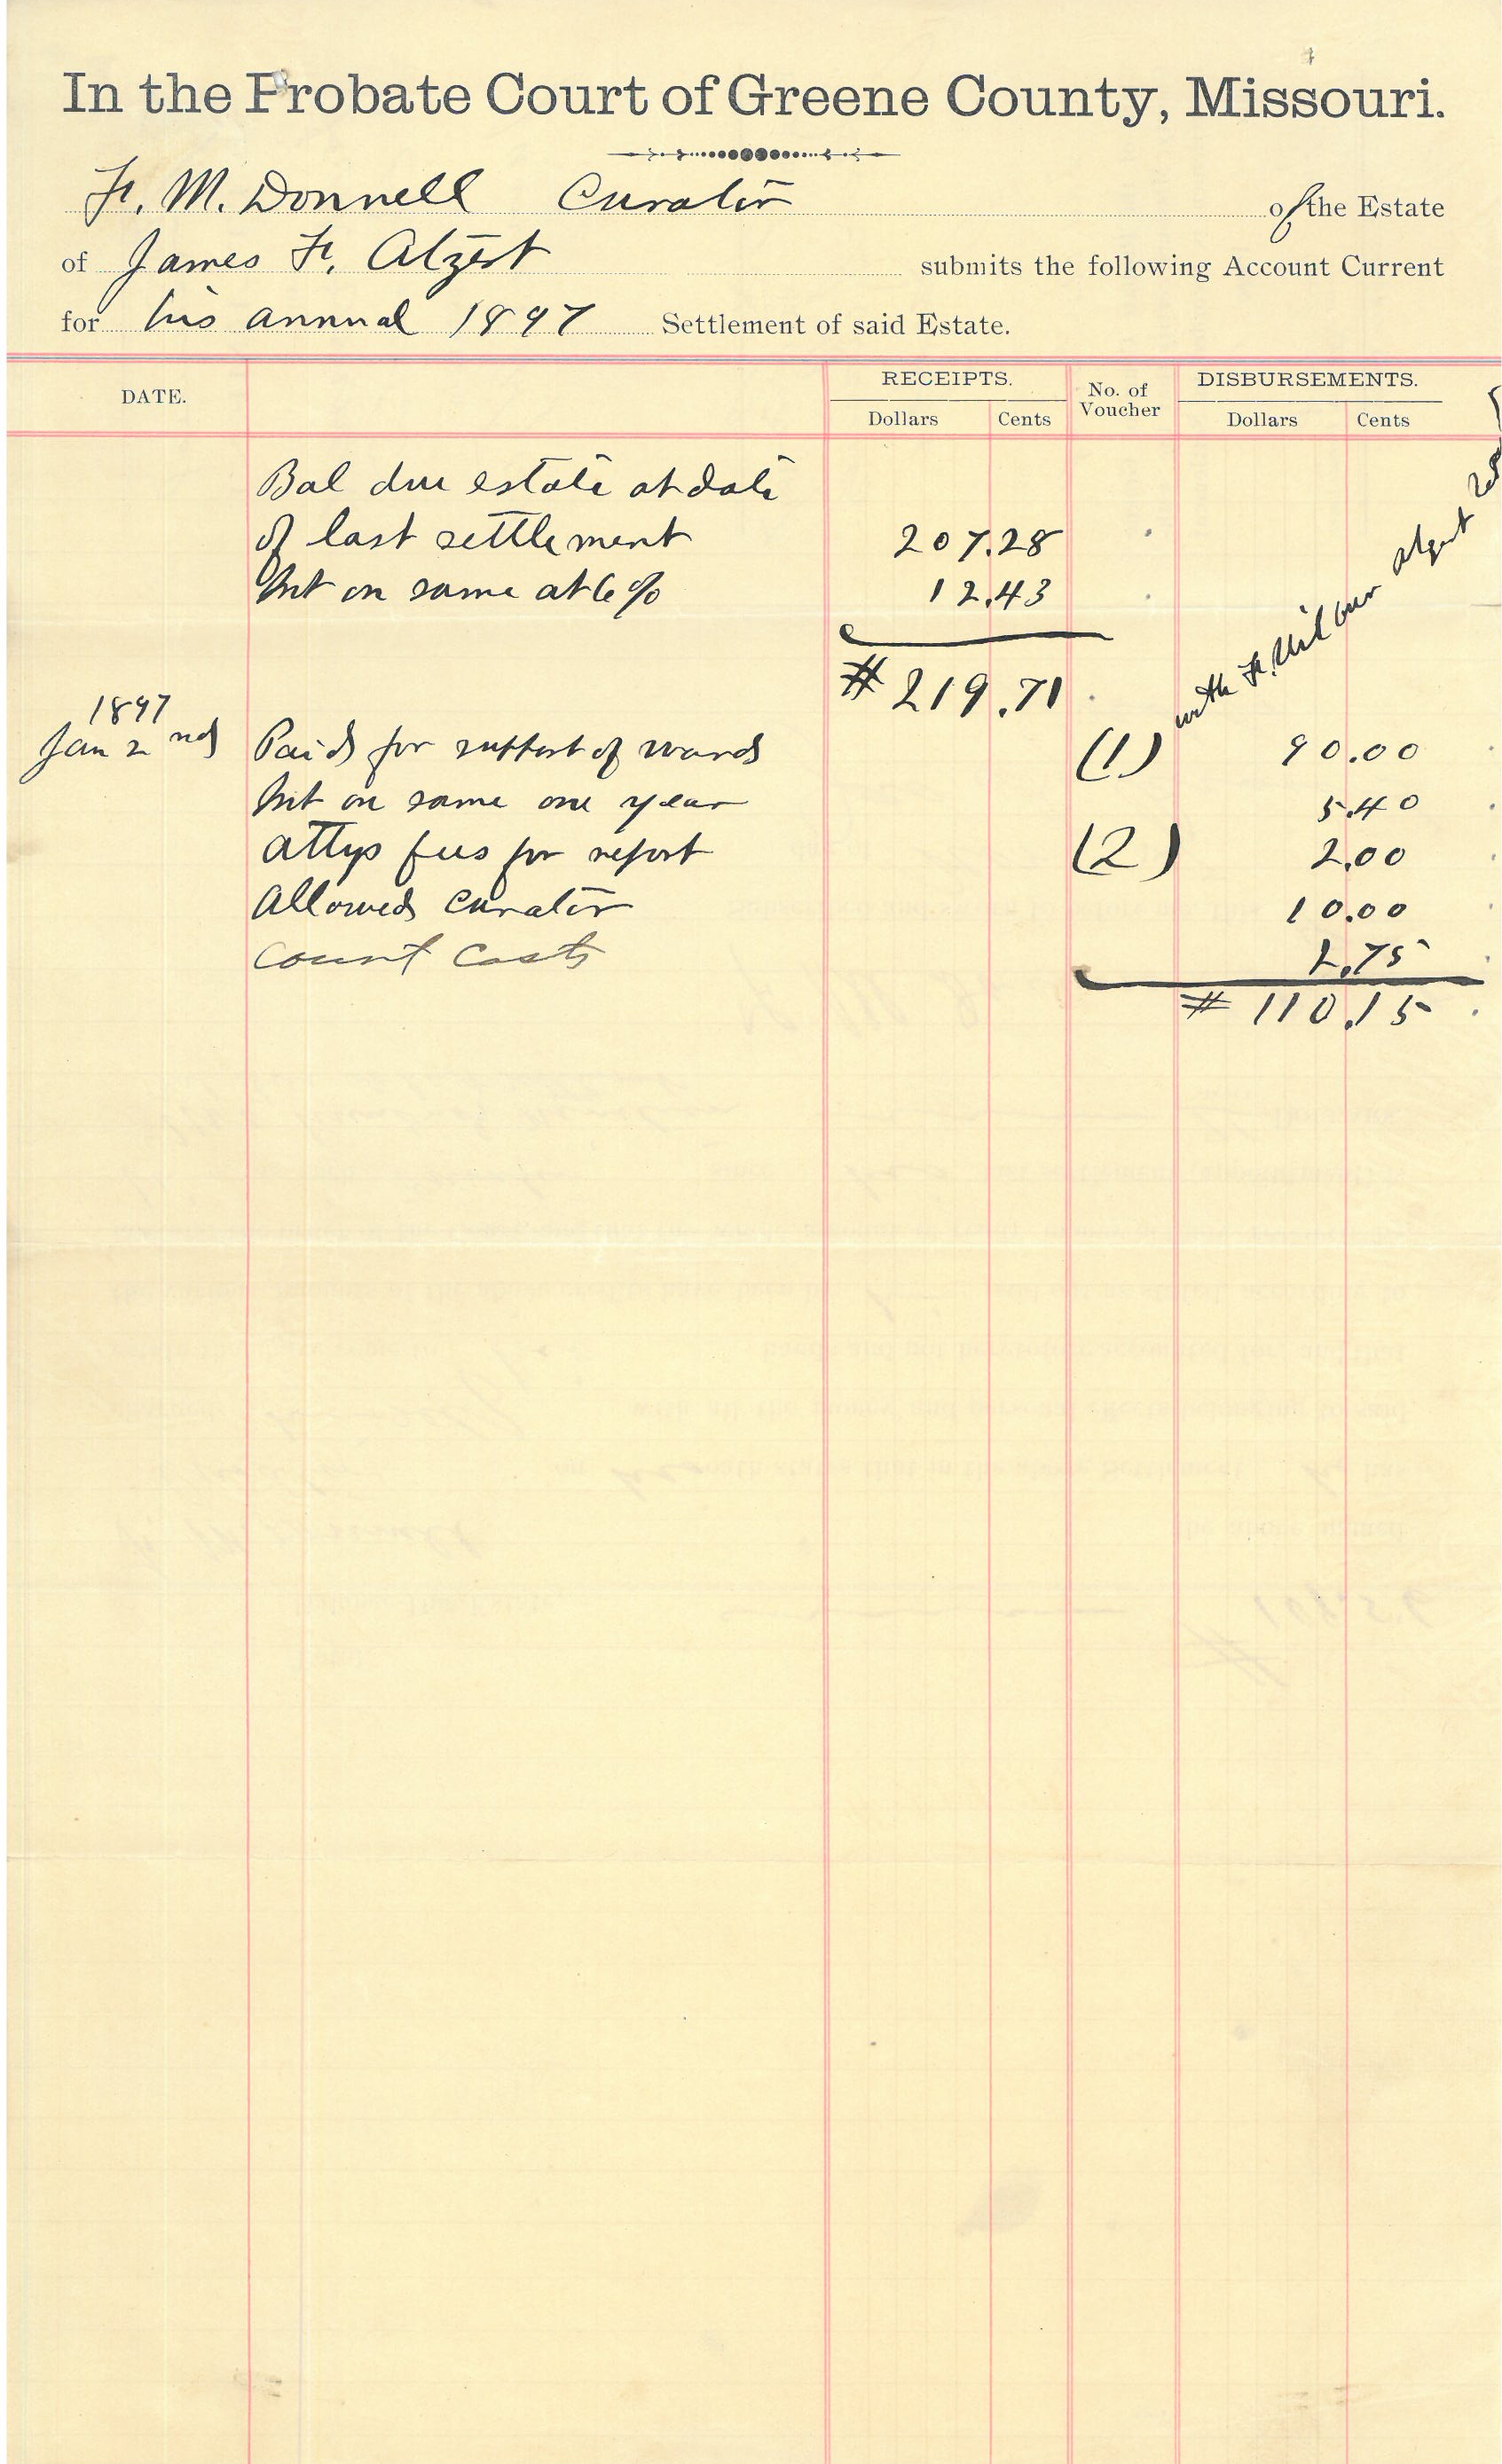 In the Probate Court of Greene County, Missouri.
F. M. Donnell Curator of the Estate
of James F. Alzert submits the following Account Current
for his annual 1897 Settlement of said Estate.
DATE. RECEIPTS. No. of Voucher DISBURSEMENTS.
Dollars Cents Dollars Cents
Bal due estate at date
of last settlement 207.28
Int on same at 6% 12.43
$219.71
with
1897
Jan 2nd Paid for support of wards (1) 90.00
Int on same one year 5.40
Attys fees for report (2) 2.00
Allowed curator 10.00
Court Costs 2.75
$110.15